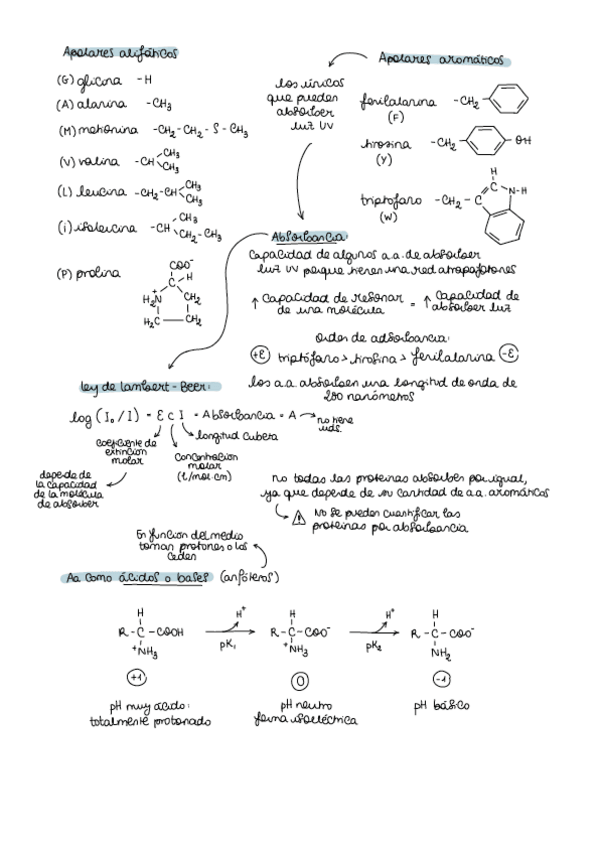 Apolares alifáticos
(G) glicina -H
(A) alanina -CH3
(M) metionina -CH2-CH2-S-CH3
(V) valina -CH CH3 CH3
(L) leucina -CH2-CH CH3 CH3
(i) isoleucina -CH CH3 CH2-CH3
(P) prolina
COO⁻
C H
H2N⁺ CH2
H2C CH2
Apolares aromáticos
los únicos
que pueden
absorber
luz UV
fenilalanina -CH2-
(F)
tirosina -CH2- -OH
(Y)
triptófano -CH2-C
(W)
H
C N-H
Absorbancia:
Capacidad de algunos a.a. de absorber
luz UV porque tienen una red atrapafotones
↑ Capacidad de resonar = ↑ Capacidad de
de una molécula absorber luz
Orden de adsorbancia:
+ε triptófano > tirosina > fenilalanina -ε
los a.a. absorben una longitud de onda de
280 nanómetros
ley de lambert-Beer:
log (I₀/I) = ε c l = Absorbancia = A → no tiene
uds.
longitud cubeta
coeficiente de
extinción
molar
concentración
molar
(l/mol·cm)
depende de
la capacidad
de la molécula
de absorber
no todas las proteínas absorben por igual,
ya que depende de su cantidad de a.a. aromáticos
No se pueden cuantificar las
proteínas por absorbancia
En función del medio
toman protones o los
ceden
Aa como ácidos o bases (anfóteros)
H H⁺ H H⁺ H
R-C-COOH → R-C-COO⁻ → R-C-COO⁻
⁺NH3 pK₁ ⁺NH3 pK₂ NH2
+1 0 -1
pH muy ácido: pH neutro pH básico
totalmente protonado forma isoeléctrica